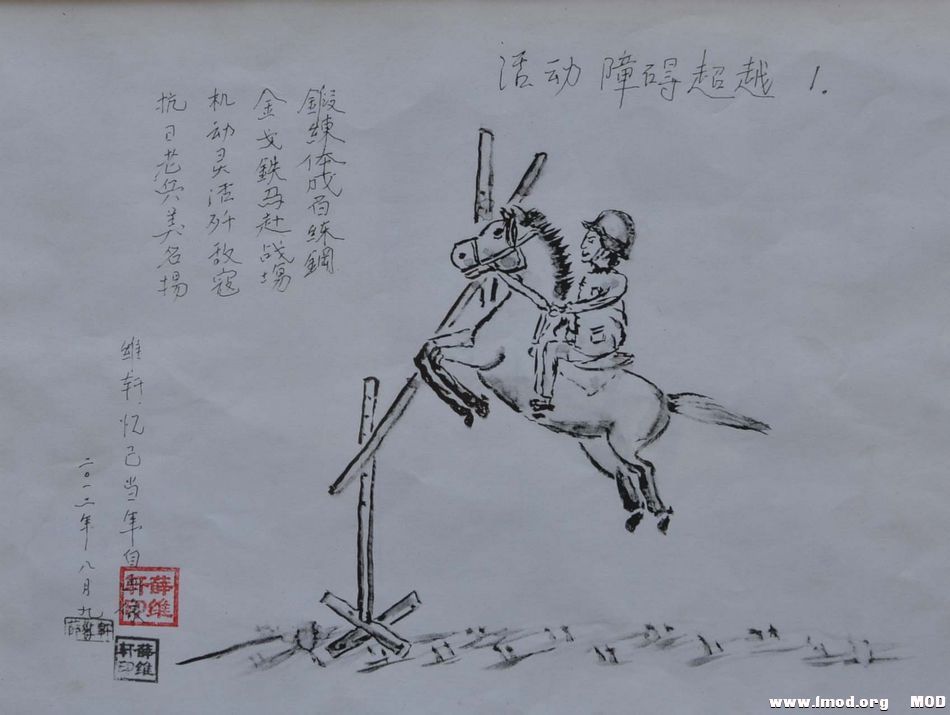 活动障碍超越 1.
鍛練体成百练鋼
金戈鉄马赴战場
机动灵活歼敌寇
抗日老兵美名揚
維轩忆己当年自画像
二〇一二年八月九
薛維軒印
薛維軒
薛維軒印
www.1mod.org MOD